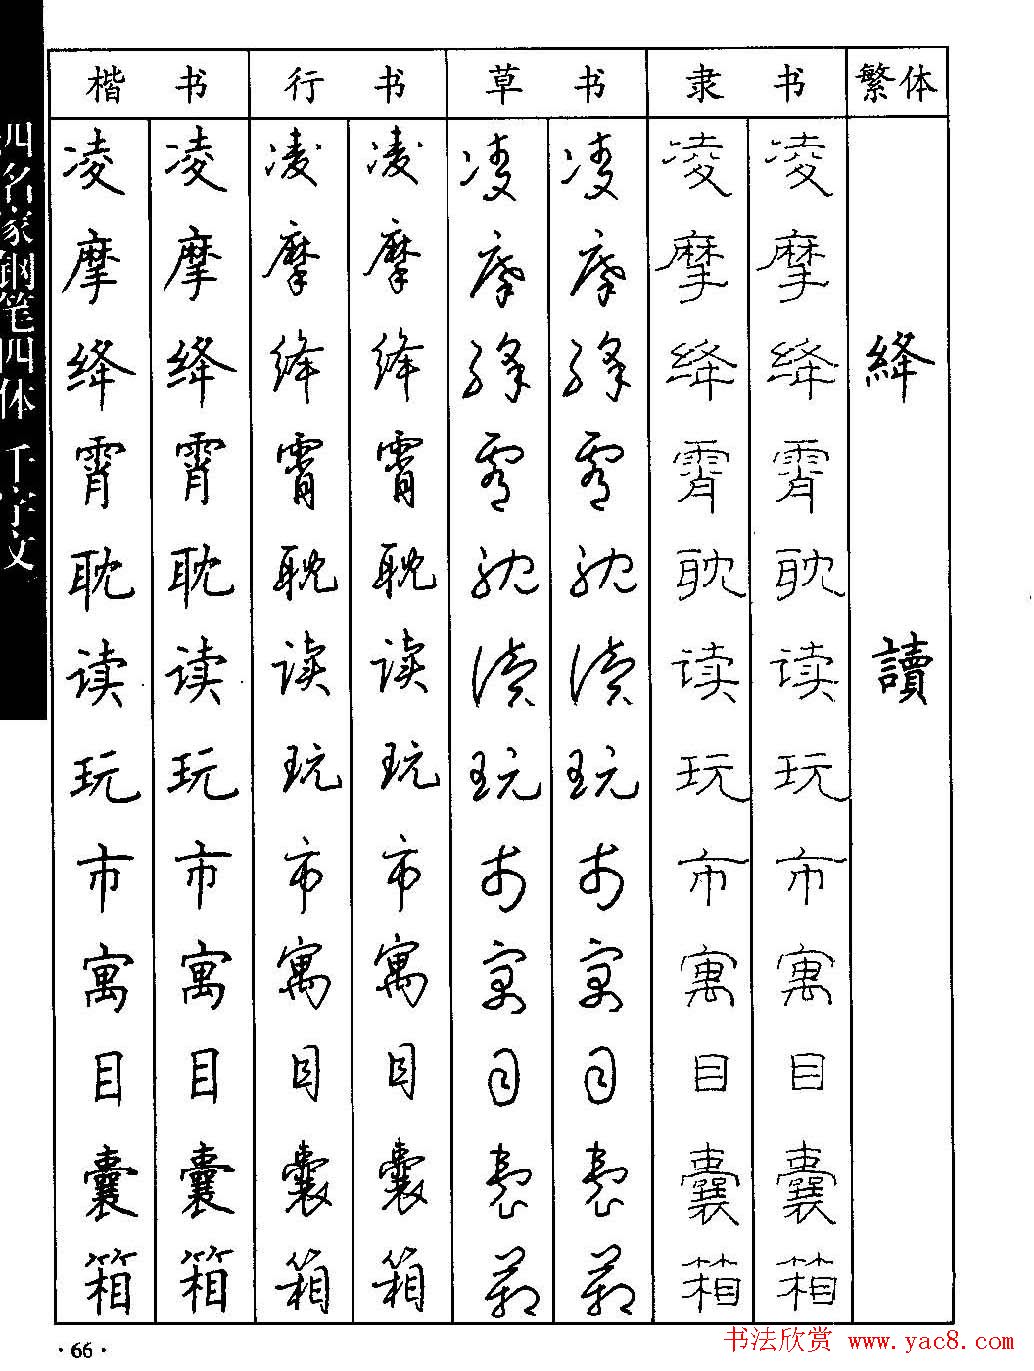 四名家钢笔四体 千字文
楷 书 行 书 草 书 隶 书 繁体
凌 凌 凌 凌 凌 凌 凌 凌
摩 摩 摩 摩 摩 摩 摩 摩
绛 绛 绛 绛 绛 绛 绛 绛 絳
霄 霄 霄 霄 霄 霄 霄 霄
耽 耽 耽 耽 耽 耽 耽 耽
读 读 读 读 读 读 读 读 讀
玩 玩 玩 玩 玩 玩 玩 玩
市 市 市 市 市 市 市 市
寓 寓 寓 寓 寓 寓 寓 寓
目 目 目 目 目 目 目 目
囊 囊 囊 囊 囊 囊 囊 囊
箱 箱 箱 箱 箱 箱 箱 箱
·66·
书法欣赏 www.yac8.com